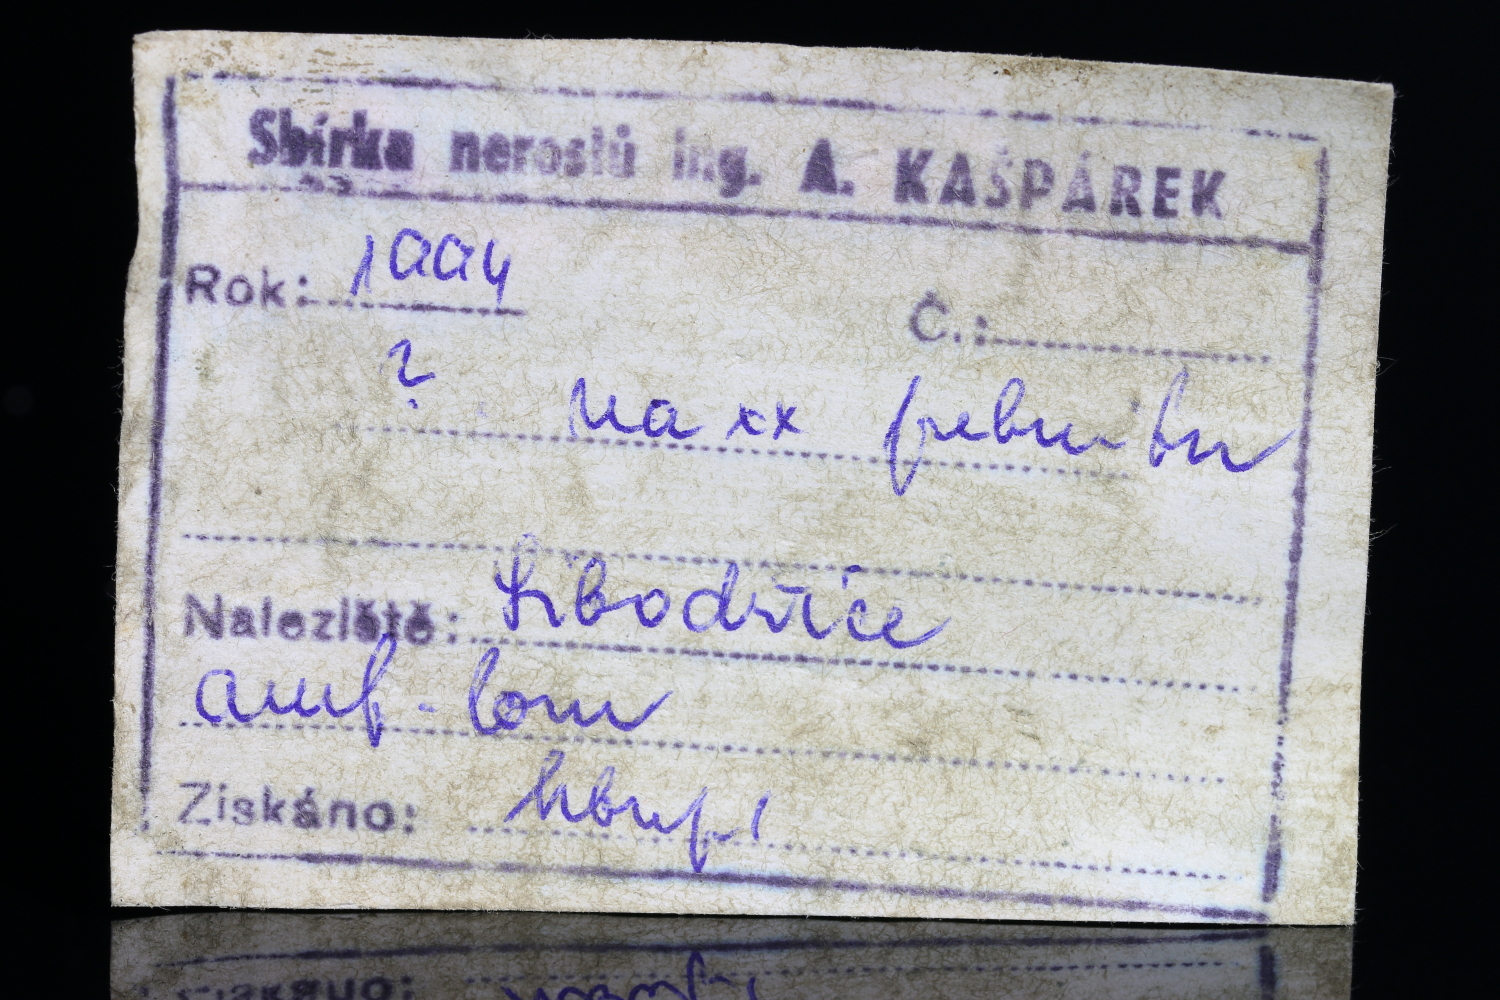 Sbírka nerostů ing. A. KAŠPÁREK
Rok: 1994
Č.:
? na xx prehnitu
Naleziště: Libodřice
amf. lom
Získáno: